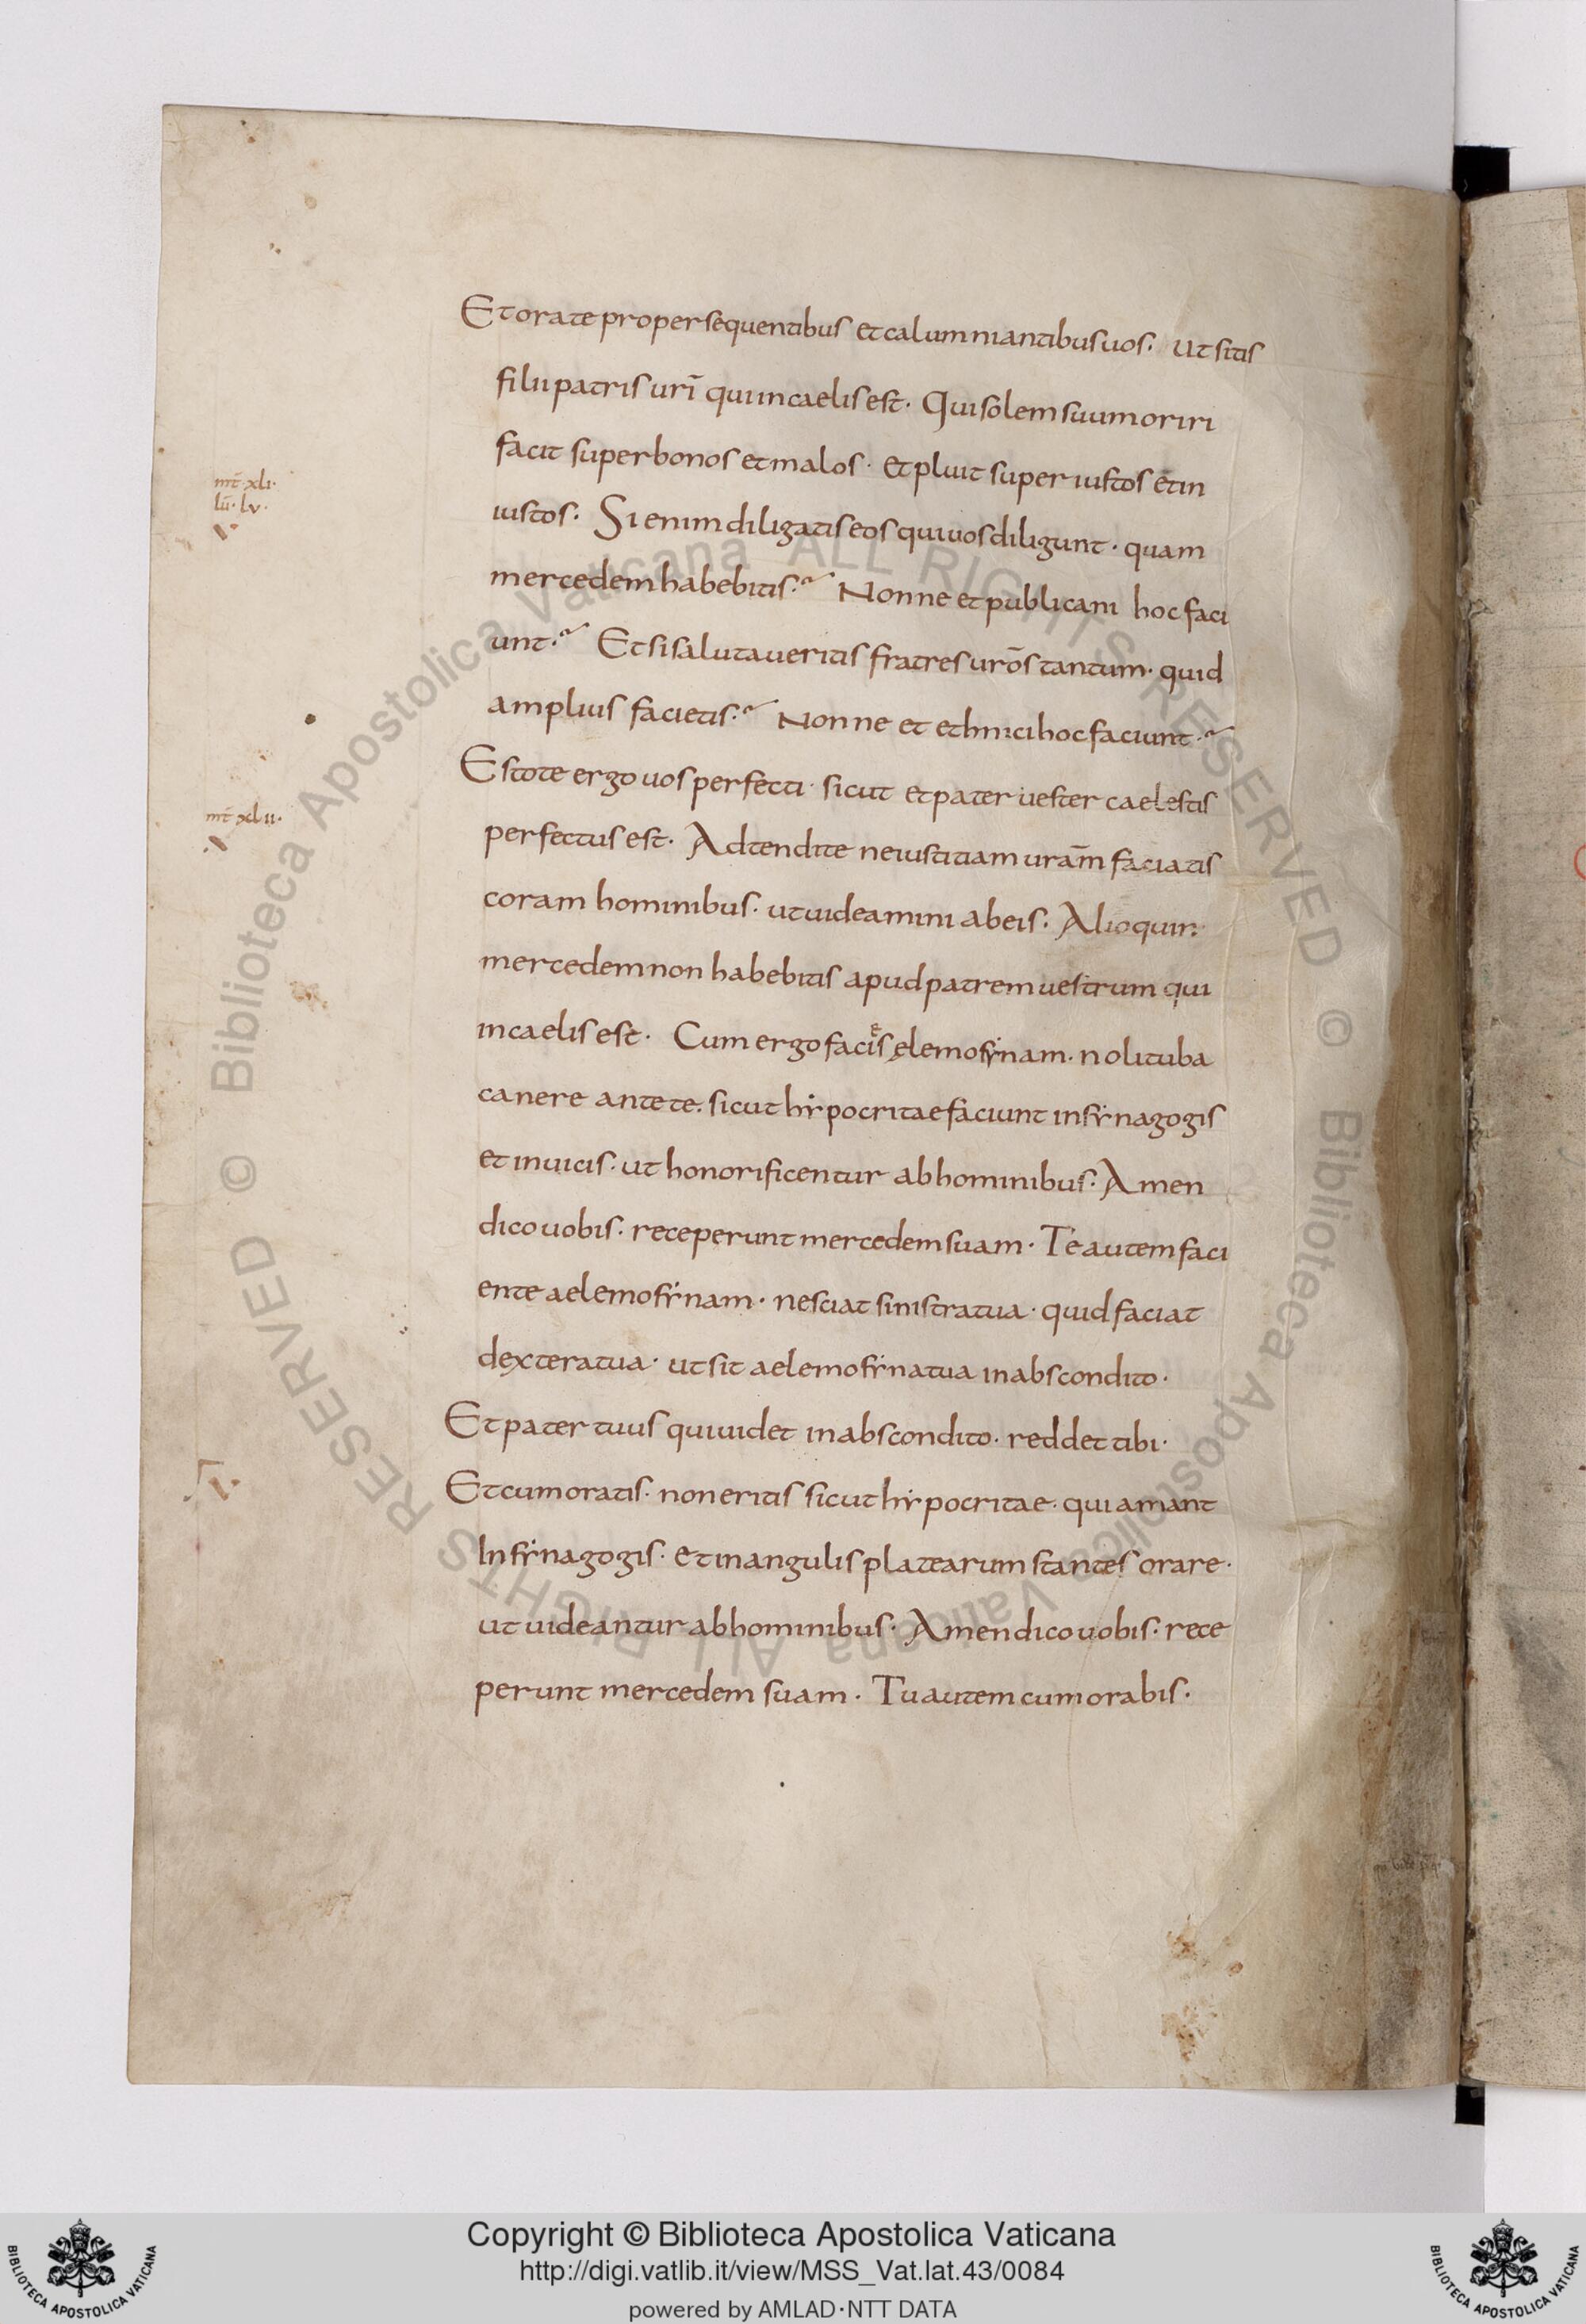 Et orate pro persequentibus et calumniantibus uos. Ut sitis
filii patris urī qui in caelis est. Qui solem suum oriri
facit super bonos et malos. et pluit super iustos et in
mt̄ xli.
lū. lv.
iustos. Si enim diligatis eos qui uos diligunt. quam
mercedem habebitis? Nonne et publicani hoc faci
unt? Et si salutaueritis fratres urōs tantum. quid
amplius facietis? Nonne et ethnici hoc faciunt?
Estote ergo uos perfecti. sicut et pater uester caelestis
mt̄ xlii.
perfectus est. Adtendite ne iustitiam urām faciatis
coram hominibus. ut uideamini ab eis. Alioquin
mercedem non habebitis apud patrem uestrum qui
in caelis est. Cum ergo facis ęlemosẏnam. noli tuba
canere ante te. sicut hẏpocritae faciunt in sẏnagogis
et in uicis. ut honorificentur ab hominibus. Amen
dico uobis. receperunt mercedem suam. Te autem faci
ente aelemosẏnam. nesciat sinistra tua. quid faciat
dextera tua. ut sit aelemosẏna tua in abscondito.
Et pater tuus qui uidet in abscondito. reddet tibi.
Et cum oratis. non eritis sicut hẏpocritae. qui amant
In sẏnagogis. et in angulis platearum stantes orare.
ut uideantur ab hominibus. Amen dico uobis. rece
perunt mercedem suam. Tu autem cum orabis.
© Biblioteca Apostolica Vaticana ALL RIGHTS RESERVED © Biblioteca Apostolica Vaticana ALL RIGHTS RESERVED
Copyright © Biblioteca Apostolica Vaticana
http://digi.vatlib.it/view/MSS_Vat.lat.43/0084
powered by AMLAD·NTT DATA
BIBLIOTECA APOSTOLICA VATICANA
BIBLIOTECA APOSTOLICA VATICANA